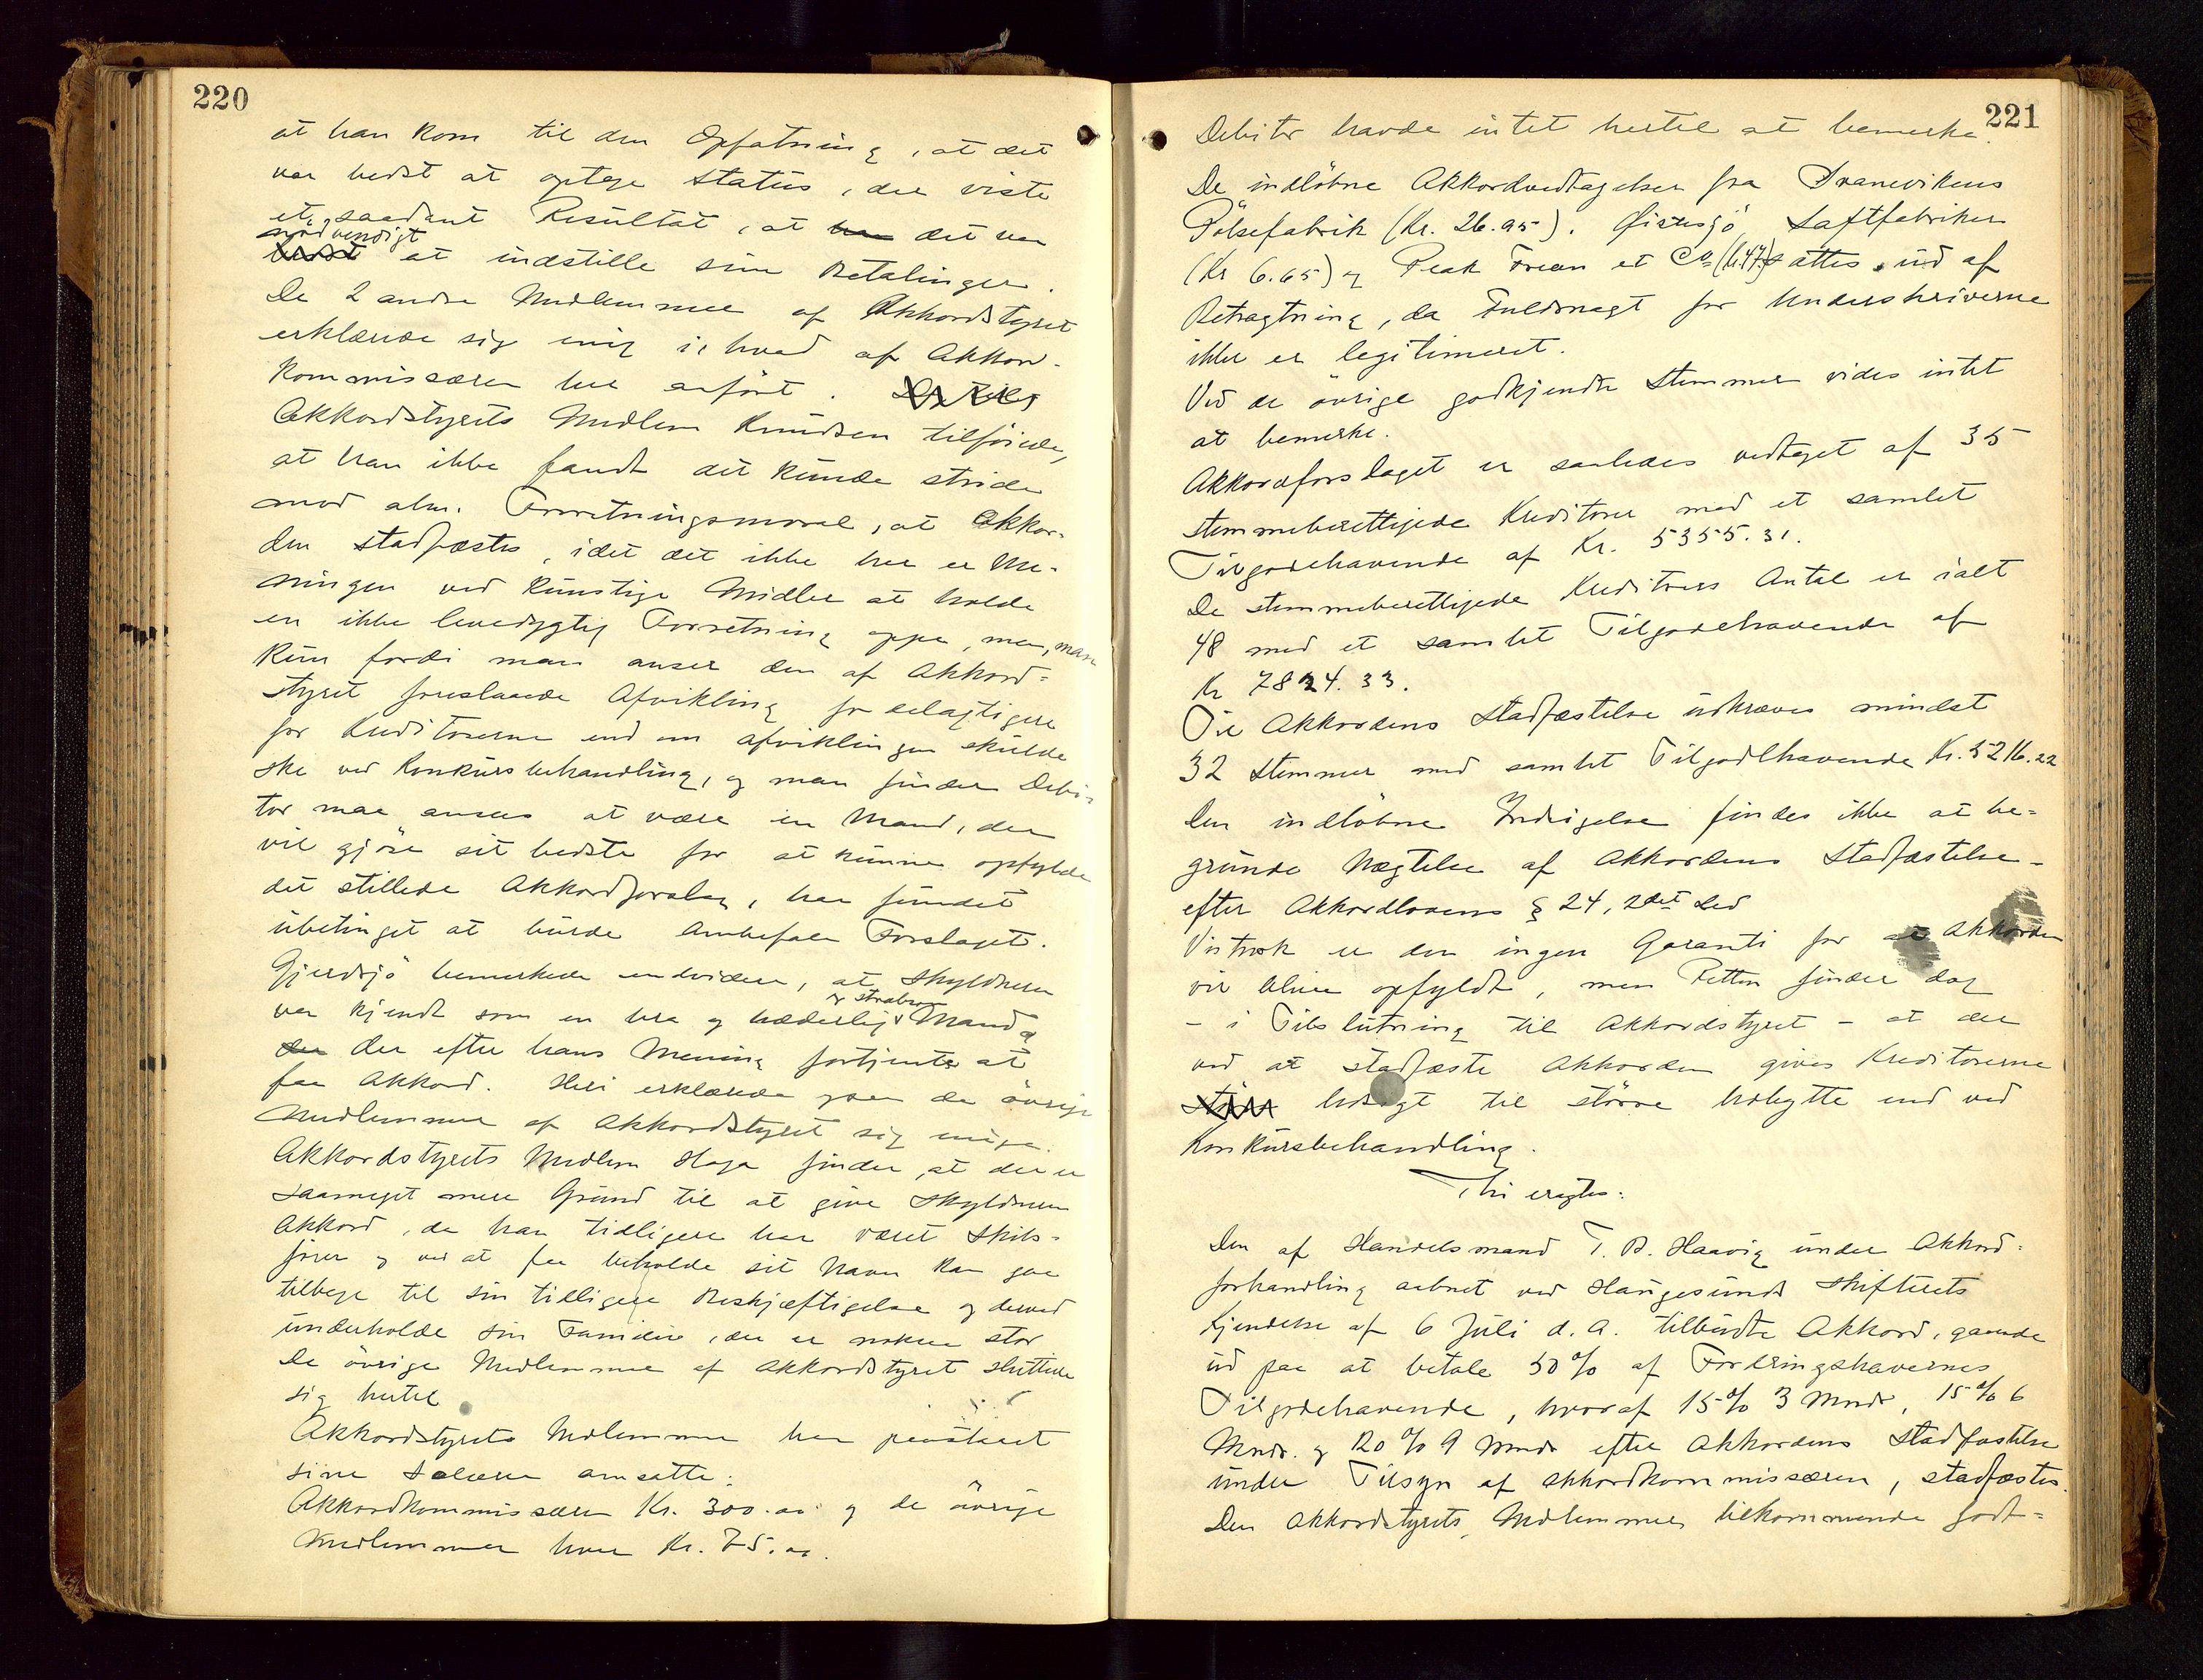 220
at han kom til den Opfatning, at det
var bedst at optage Status, der viste
et saadant Resultat, at han det var
nødvendigt
bedst at indstille sine Betalinger.
De 2 andre Medlemmer af Akkordstyret
erklærede sig enig i hvad af Akkord-
kommissæren her anført.
Akkordstyrets Medlem Knudsen tilføiede,
at han ikke fandt det kunde stride
mod alm. Forretningsmoral, at Akkor-
den stadfæstes, idet det ikke her er Me-
ningen ved kunstige Midler at holde
en ikke levedygtig Forretning oppe, men, man
kun fordi man anser den af Akkord-
styret foreslaaede Afvikling fordelagtigere
for Kreditorerne end om afviklingen skulde
ske ved Konkursbehandling, og man finder Debi-
tor maa ansees at være en Mand, der
vil gjøre sit bedste for at kunne opfylde
det stillede Akkordforslag, har fundet
ubetinget at burde anbefale Forslaget.
Gjerdsjö bemerkede endvidere, at Skyldneren
& strebsom
var kjendt som en bra og hæderlig Mand &
der der efter hans Mening fortjente at
faa Akkord. Heri erklærede ogsaa de øvrige
Medlemmer af Akkordstyret sig enige.
Akkordstyrets Medlem Haga finder, at der er
saameget mere Grund til at give Skyldneren
Akkord, da han tidligere har været Skibs-
fører og ved at faa beholde sit Navn kan gaa
tilbage til sin tidligere Beskjæftigelse og derved
underholde sin Familie, der er noksaa stor
De øvrige Medlemmer af Akkordstyret sluttede
sig hertil
Akkordstyrets Medlemmer har paastaaet
sine Salærer ansatte:
Akkordkommissæren Kr. 300.00 og de øvrige
Medlemmer hver Kr. 75.00.
221
Debitor havde intet hertil at bemerke.
De indløbne Akkordvedtagelser fra Svanevikens
Pølsefabrik (Kr. 26.95). Øistesjö Saftfabriker
(Kr 6.65) og Peak Frean et Co (6.47) sættes ud af
Betragtning, da Fuldmagt for Underskriverne
ikke er legitimeret.
Ved de øvrige godkjendte Stemmer vides intet
at bemerke.
Akkordforslaget er saaledes vedtaget af 35
stemmeberettigede Kreditorer med et samlet
Tilgodehavende af Kr. 5355.31.
De stemmeberettigede Kreditorers Antal er ialt
48 med et samlet Tilgodehavende af
Kr 7824.33.
Til Akkordens Stadfæstelse udkræves mindst
32 Stemmer med samlet Tilgodehavende Kr. 5216.22
Den indløbne Indsigelse findes ikke at be-
grunde Nægtelse af Akkordens Stadfæstelse
efter Akkordlovens § 24, 2det Led
Vistnok er der ingen Garanti for at Akkorden
vil blive opfyldt, men Retten finder dog
- i Tilslutning til Akkordstyret - at der
ved at stadfæste Akkorden gives Kreditorerne
Udsigt til større Udbytte end ved
Konkursbehandling.
Thi eragtes:
Den af Handelsmand T. B. Haavig under Akkord-
forhandling aabnet ved Haugesunds Skifterets
Kjendelse af 6 Juli d.A. tilbudte Akkord, gaaende
ud paa at betale 50% af Fordringshavernes
Tilgodehavende, hvoraf 15% 3 Mndr, 15% 6
Mndr. og 20% 9 Mndr efter Akkordens Stadfæstelse
under Tilsyn af Akkordkommissæren, stadfæstes.
Den Akkordstyrets Medlemmer tilkommende godt-